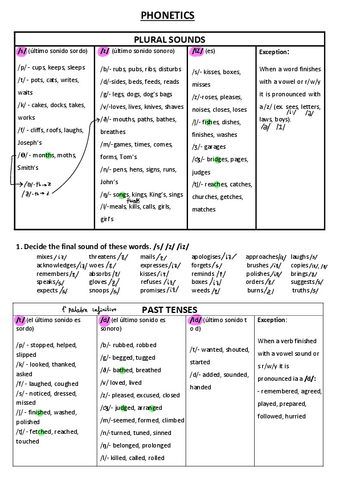 PHONETICS
PLURAL SOUNDS
/s/ (último sonido sordo)
/p/ - cups, keeps, sleeps
/t/ - pots, cats, writes,
waits
/k/ - cakes, docks, takes,
works
/f/ - cliffs, roofs, laughs,
Joseph's
/θ/ - months, moths,
Smith's
/z/ (último sonido sonoro)
/b/- rubs, pubs, ribs, disturbs
/d/-sides, beds, feeds, reads
/g/- legs, dogs, dog's bags
/v/-loves, lives, knives, shaves
/ð/- mouths, paths, bathes,
breathes
/m/-games, times, comes,
forms, Tom's
/n/- pens, hens, signs, runs,
John's
/ŋ/- songs, kings, King's, sings
/l/-meals, kills, calls, girls,
girl's
/iz/ (es)
/s/- kisses, boxes,
misses
/z/-roses, pleases,
noises, closes, loses
/ʃ/- fishes, dishes,
finishes, washes
/ʒ/ - garages
/dʒ/- bridges, pages,
judges
/tʃ/- reaches, catches,
churches, getches,
matches
Exception:
When a word finished
with a vowel or r/w/y
it is pronounced with
a /z/ (ex. sees, letters,
laws, boys).
1. Decide the final sound of these words. /s/ /z/ /iz/
mixes /iz
threatens /z
mails /z
apologises /iz
approaches /iz
laughs /s
acknowledges /iz
woes /z
expresses /iz
forgets /s
brushes /iz
copies /z
remembers /z
absorbs /z
kisses /iz
reminds /z
polishes /iz
brings /z
speaks /s
gloves /z
refuses /iz
boxes /iz
orders /z
suggests /s
expects /s
snoops /s
promises /iz
weeds /z
burns /z
truths /s
PAST TENSES
/t/ (el último sonido es
sordo)
/p/ - stopped, helped,
slipped
/k/ - looked, thanked,
asked
/f/ - laughed, coughed
/s/ - noticed, dressed,
missed
/ʃ/ - finished, washed,
polished
/tʃ/- fetched, reached,
touched
/d/ (el último sonido es
sonoro)
/b/- rubbed, robbed
/g/- begged, tugged
/ð/- bathed, breathed
/v/ loved, lived
/z/- pleased, excused, closed
/dʒ/ judged, arranged
/m/-seemed, formed, climbed
/n/-turned, tuned, sinned
/ŋ/- belonged, prolonged
/l/- killed, called, rolled
/id/ (último sonido
t o d)
/t/- wanted, shouted,
started
/d/- added, sounded,
handed
Exception:
When a verb finished
with a vowel sound or
s r/w/y it is
pronounced ia a /d/:
- remembered, agreed,
played, prepared,
followed, hurried